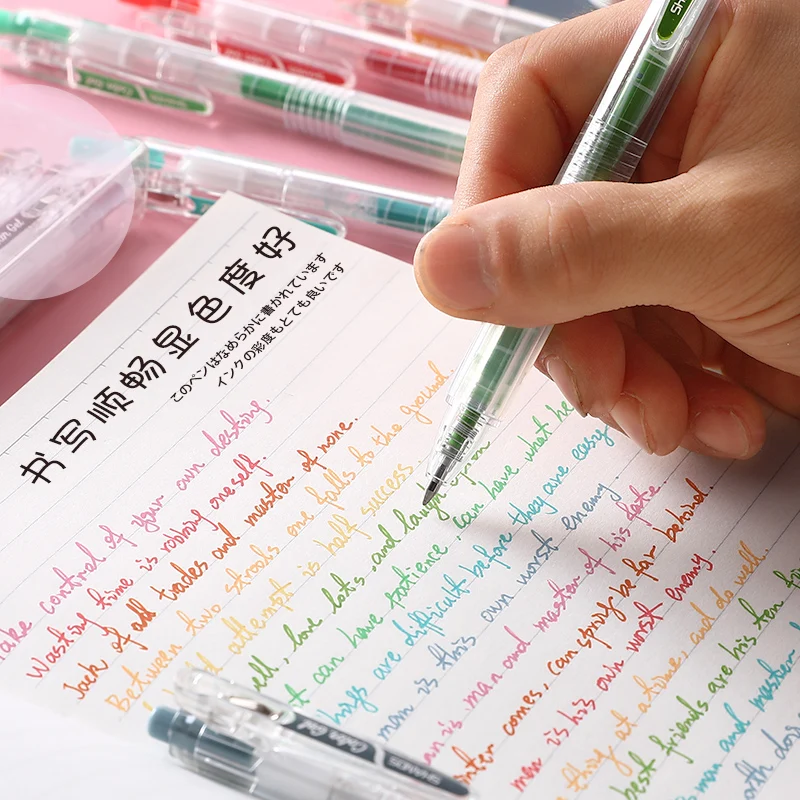 书写顺畅显色度好
このペンはなめらかに書かれています
インクの彩度もとても良いです
ake control of your own destiny.
Wasting time is robbing oneself.
Jack of all trades and master of none.
Between two stools one falls to the ground.
attempt is half success.
ell, love lots, and laugh
it can have patience, can have what he
things are difficult before they are easy
man is his own worst enemy
an is man and master of his fate.
inter comes, can spring be far behind.
man is his own worst enemy.
thing at a time, and do well.
best friends are his ten fin
man and master
Color Gel